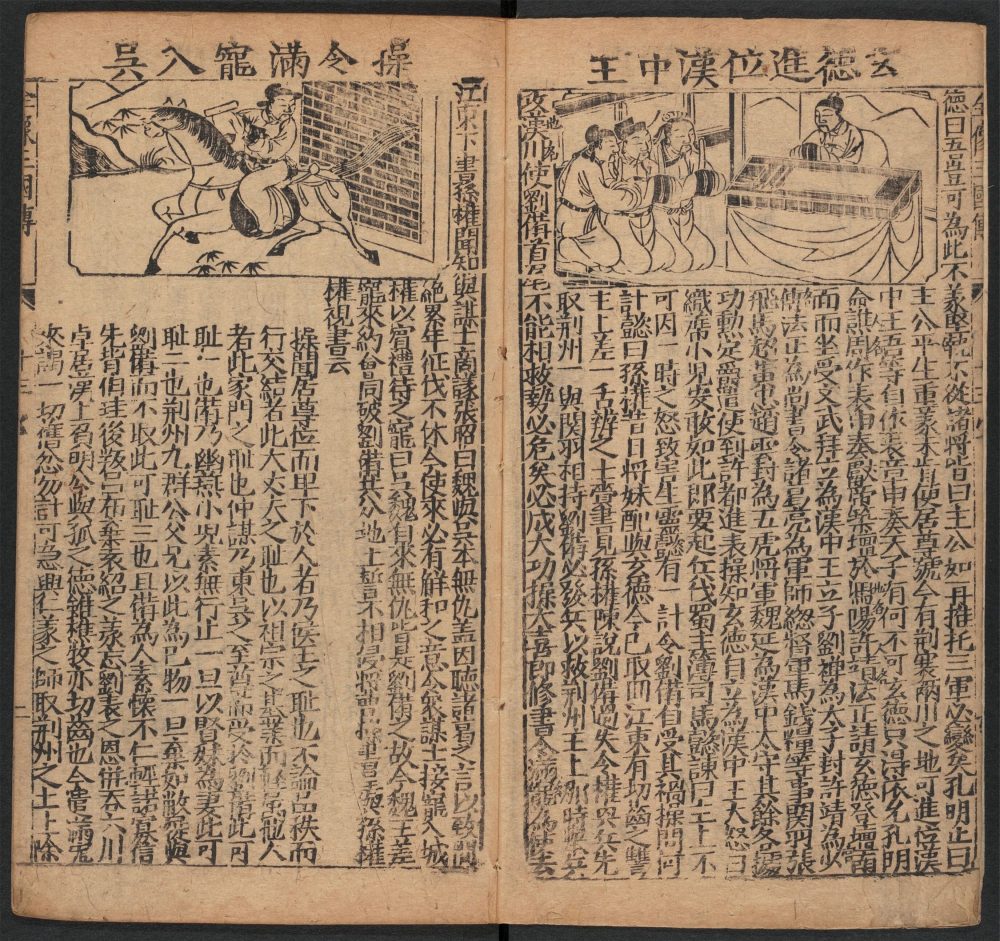 玄德進位漢中王
德曰五豈可為此不義堅執不從諸將皆曰主公如再推托三軍必變矣孔明止曰
主公平生重義未肯便居尊號今有荊襄兩川之地可進位漢
中王吾等自依表章申奏天子有何不可玄德只得依允孔明
命譙周作表申奏獻帝築壇於沔陽許靖法正請玄德登壇南
面而坐受文武拜立為漢中王立子劉禪為太子封許靖為太
傅法正為尚書令諸葛亮為軍師總督軍馬錢糧等事關羽張
飛馬超黃忠趙雲封為五虎將軍魏延為漢中太守其餘各擬
功勳定爵畢便到許都進表操知玄德自立為漢中王大怒曰
織席小兒安敢如此即要起兵伐蜀主簿司馬懿諫曰王上不
可因一時之怒致害生靈懿有一計令劉備自受其禍操問何
計懿曰孫權昔日將妹配與玄德今已取回江東有切齒之讐
主上差一舌辨之士賫書見孫權陳說劉備過失令權興兵先
取荊州一與關羽相持劉備必發兵以救荊州王上那時興兵
攻漢川地名使劉備首尾不能相救勢必危矣必成大功操大喜即修書令滿寵為使去
操令滿寵入吳
江東下書孫權聞知與謀士商議張昭曰魏與吳本無仇蓋因聽諸葛之言以致間
絕累年征伐不休今使來必有解和之意令眾謀士接寵入城
權以賓禮待之寵曰吳魏自來無仇皆是劉備之故今魏王差
寵來約會同破劉備共分地土誓不相侵將書呈與孫權
權視書云
操聞居尊位而卑下於人者乃侯王之恥也不論品秩而
行交結者此大丈夫之恥也以祖宗之基業而輕屬他人
者此家門之恥也仲謀乃東吳之至尊而受於劉備此可
恥一也備乃幽燕小兒素無行止一旦以賢妹為妻此可
恥二也荊州九群公父兄以此為己物一旦棄如敝屣與
劉備而不取此可恥三也且備為人素懷不仁輕諾寡信
先背伯珪後叛呂布棄袁紹之義忘劉表之恩併吞六川
卓居漢上明公與孤之德雖樵牧亦切齒也今遣滿寵
來謁一切舊怨勿計可急興仁義之師取荊州之土上除
全像三國傳